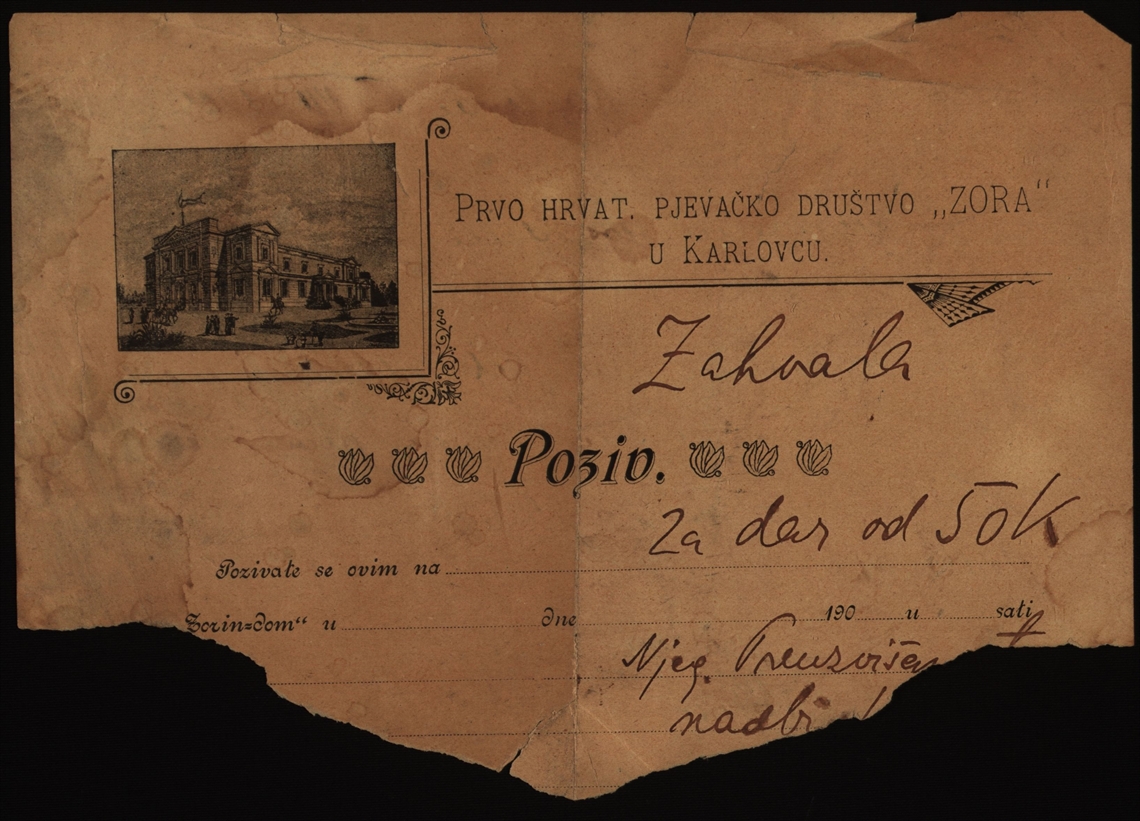 PRVO HRVAT. PJEVAČKO DRUŠTVO „ZORA“
U KARLOVCU.
Zahvala
Poziv.
Za dar od 50K
Pozivate se ovim na
Zorin=dom“ u dne 190 u sati
Njeg.